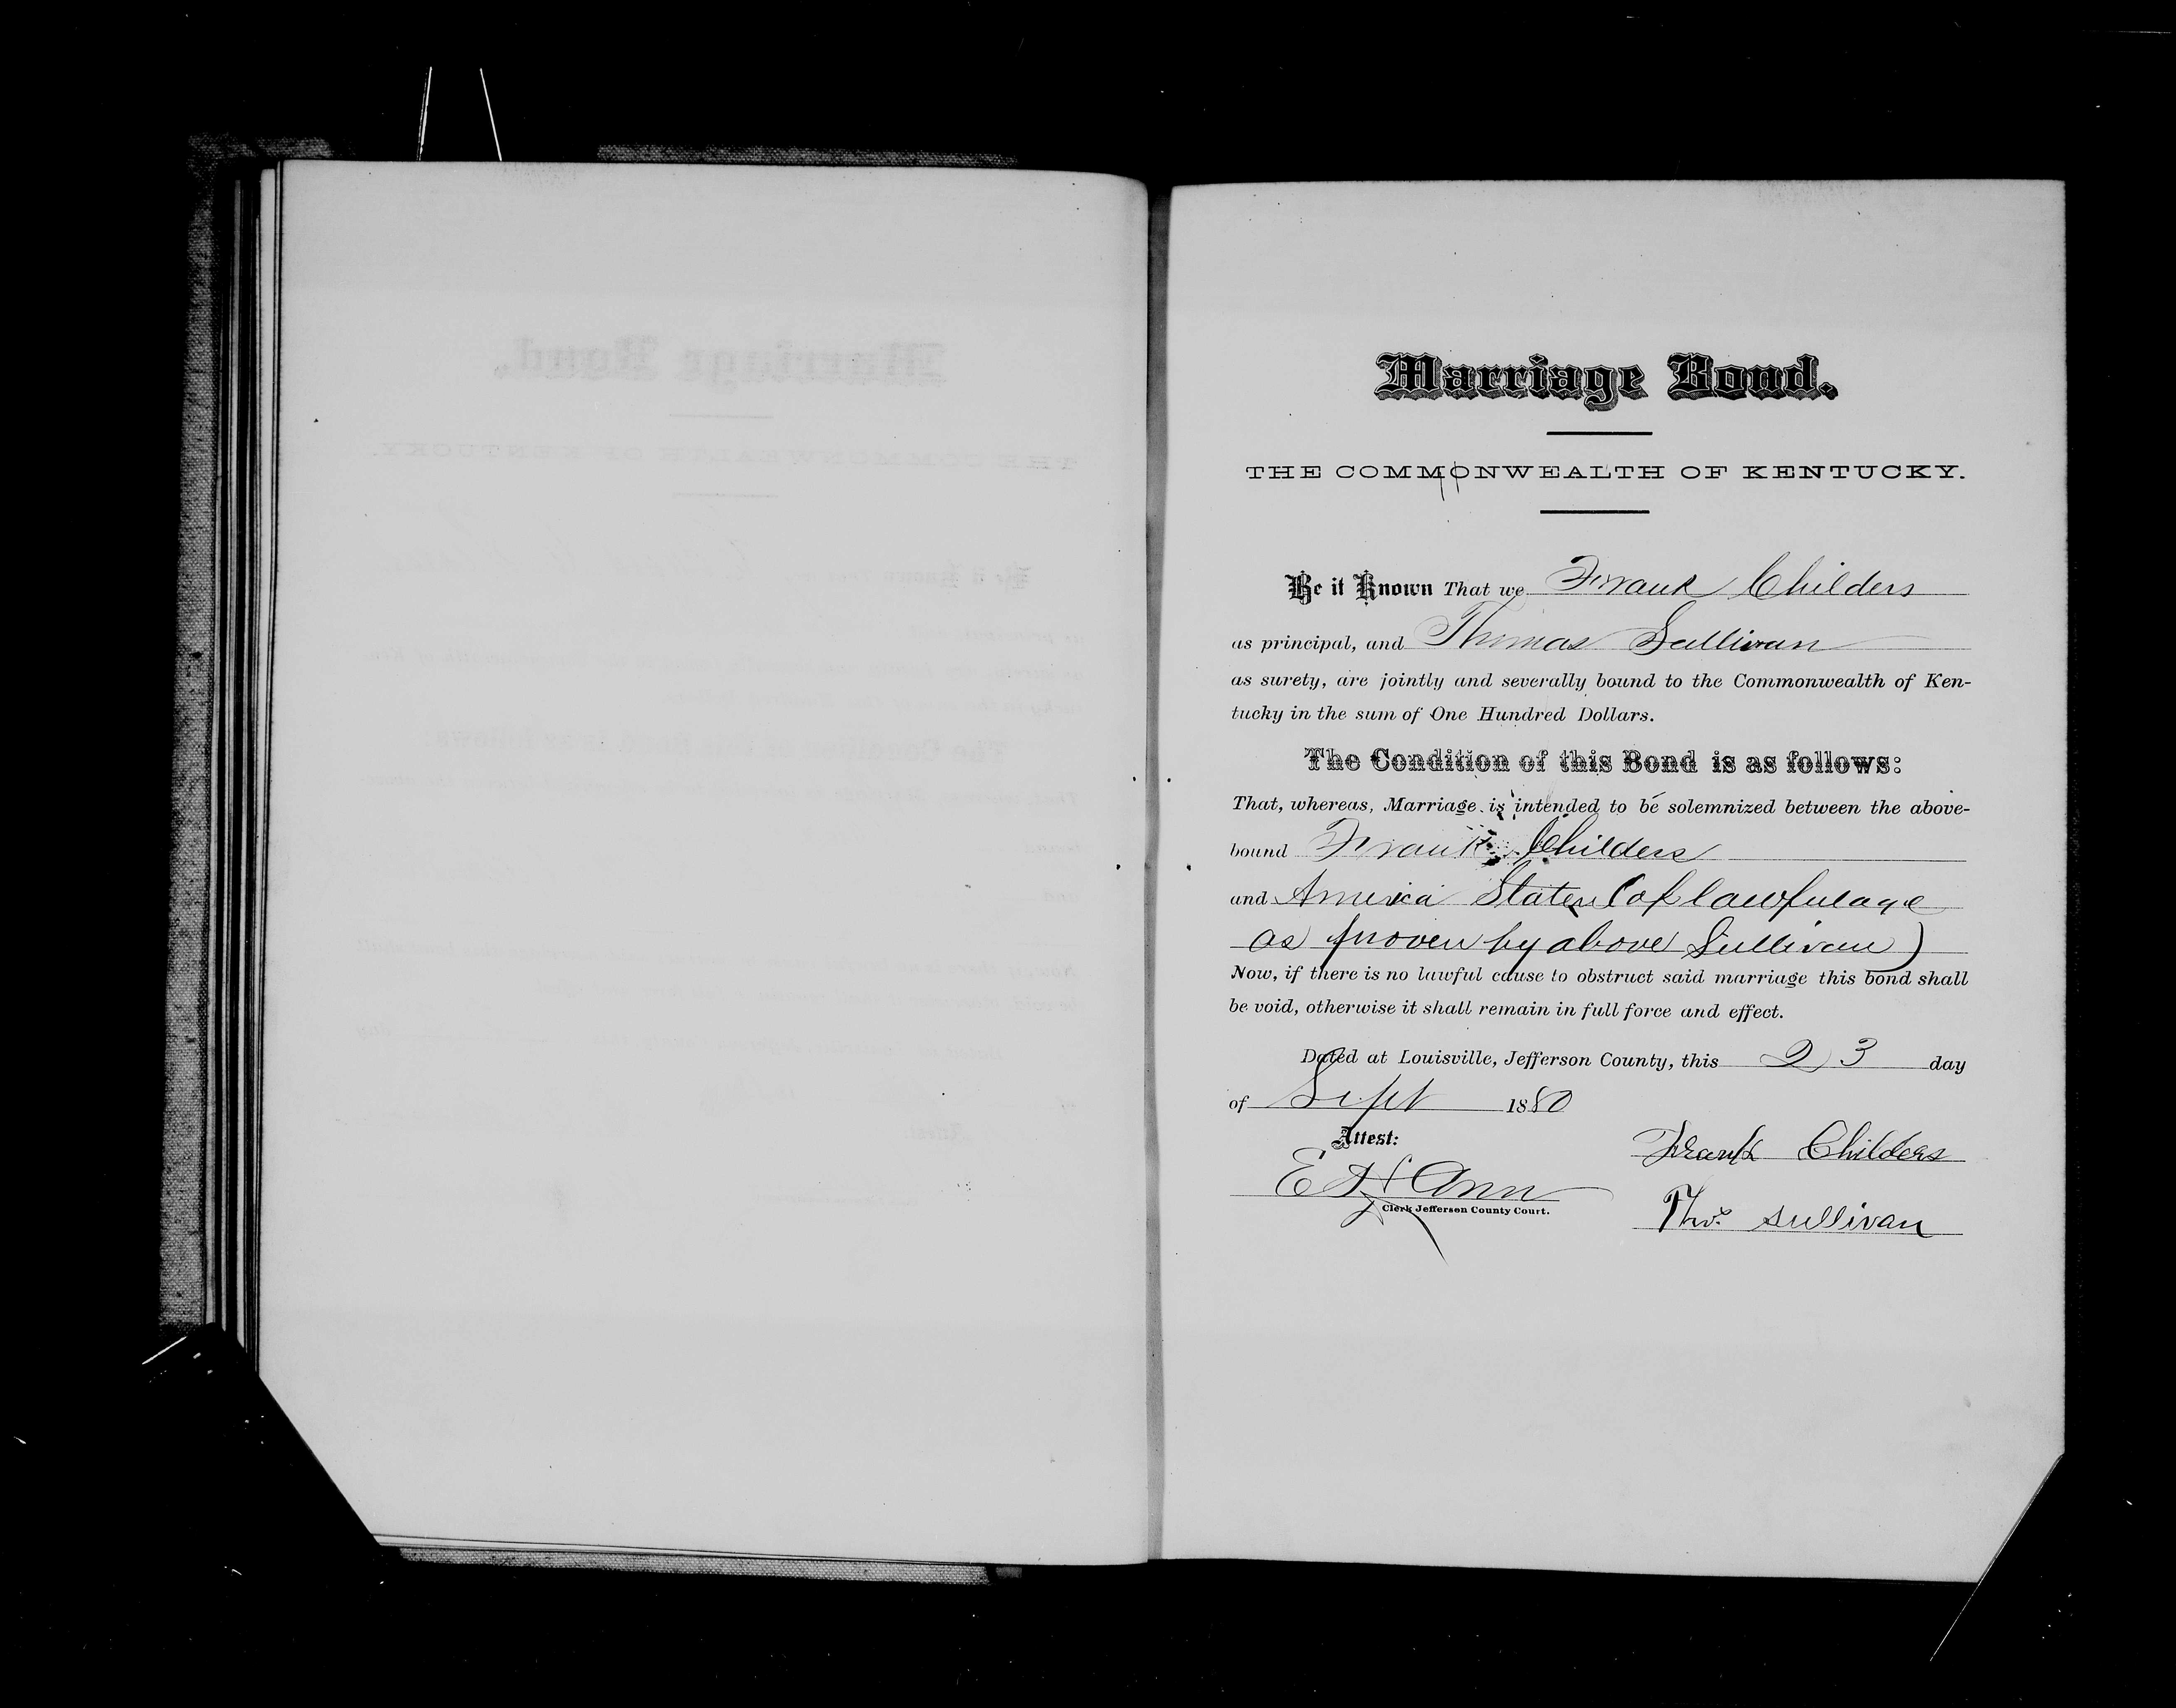 Marriage Bond.
THE COMMONWEALTH OF KENTUCKY.
Be it Known That we Frank Childers
as principal, and Thomas Sullivan
as surety, are jointly and severally bound to the Commonwealth of Ken-
tucky in the sum of One Hundred Dollars.
The Condition of this Bond is as follows:
That, whereas, Marriage is intended to be solemnized between the above-
bound Frank Childers
and America Staten (of lawful age
as proven by above Sullivan)
Now, if there is no lawful cause to obstruct said marriage this bond shall
be void, otherwise it shall remain in full force and effect.
Dated at Louisville, Jefferson County, this 23 day
of Sept 1880
Attest:
Frank Childers
Clerk Jefferson County Court.
Thos. Sullivan